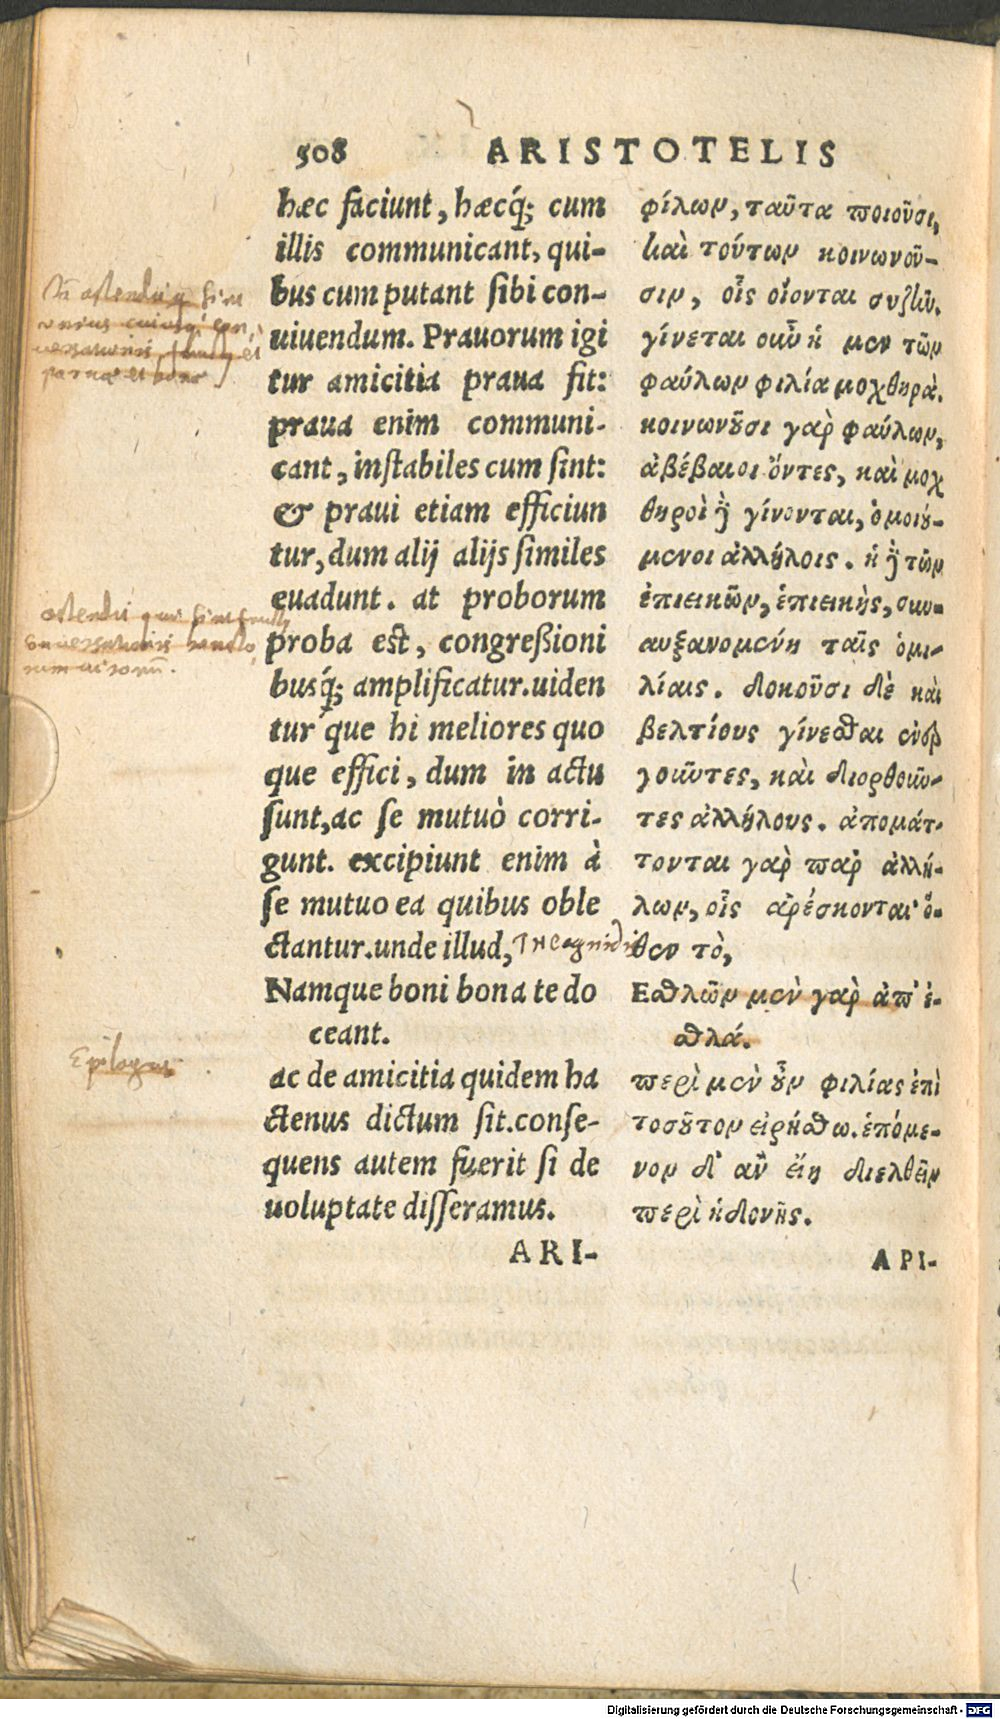 508 ARISTOTELIS
hæc faciunt, hæcq́; cum
illis communicant, qui-
bus cum putant sibi con-
uiuendum. Prauorum igi
tur amicitia praua fit:
praua enim communi-
cant, instabiles cum sint:
& praui etiam efficiun
tur, dum alij alijs similes
euadunt. at proborum
proba est, congreßioni
busq́; amplificatur. uiden
tur que hi meliores quo
que effici, dum in actu
sunt, ac se mutuò corri-
gunt. excipiunt enim à
se mutuo ea quibus oble
ctantur. unde illud,
Namque boni bona te do
ceant.
ac de amicitia quidem ha
ctenus dictum sit. conse-
quens autem fuerit si de
uoluptate disseramus.
ARI-
φίλων, ταῦτα ποιοῦσι,
καὶ τούτων κοινωνοῦ-
σιν, οἷς οἴονται συζῆν.
γίνεται οὖν ἡ μὲν τῶν
φαύλων φιλία μοχθηρὰ.
κοινωνοῦσι γὰρ φαύλων,
ἀβέβαιοι ὄντες, καὶ μοχ
θηροὶ δὲ γίνονται, ὁμοιού-
μενοι ἀλλήλοις. ἡ δὲ τῶν
ἐπιεικῶν, ἐπιεικὴς, συν-
αυξανομένη ταῖς ὁμι-
λίαις. δοκοῦσι δὲ καὶ
βελτίους γίνεσθαι ἐνερ
γοῦντες, καὶ διορθοῦν-
τες ἀλλήλους. ἀπομάτ-
τονται γὰρ παρ ἀλλή-
λων, οἷς ἀρέσκονται· ὅ-
θεν τὸ,
Εσθλῶν μὲν γὰρ ἀπ' ἐ-
σθλά.
περὶ μὲν οὖν φιλίας ἐπὶ
τοσοῦτον εἰρήσθω. ἑπόμε-
νον δ' ἂν εἴη διελθεῖν
περὶ ἡδονῆς.
ΑΡΙ-
Epilogus
Digitalisierung gefördert durch die Deutsche Forschungsgemeinschaft - DFG